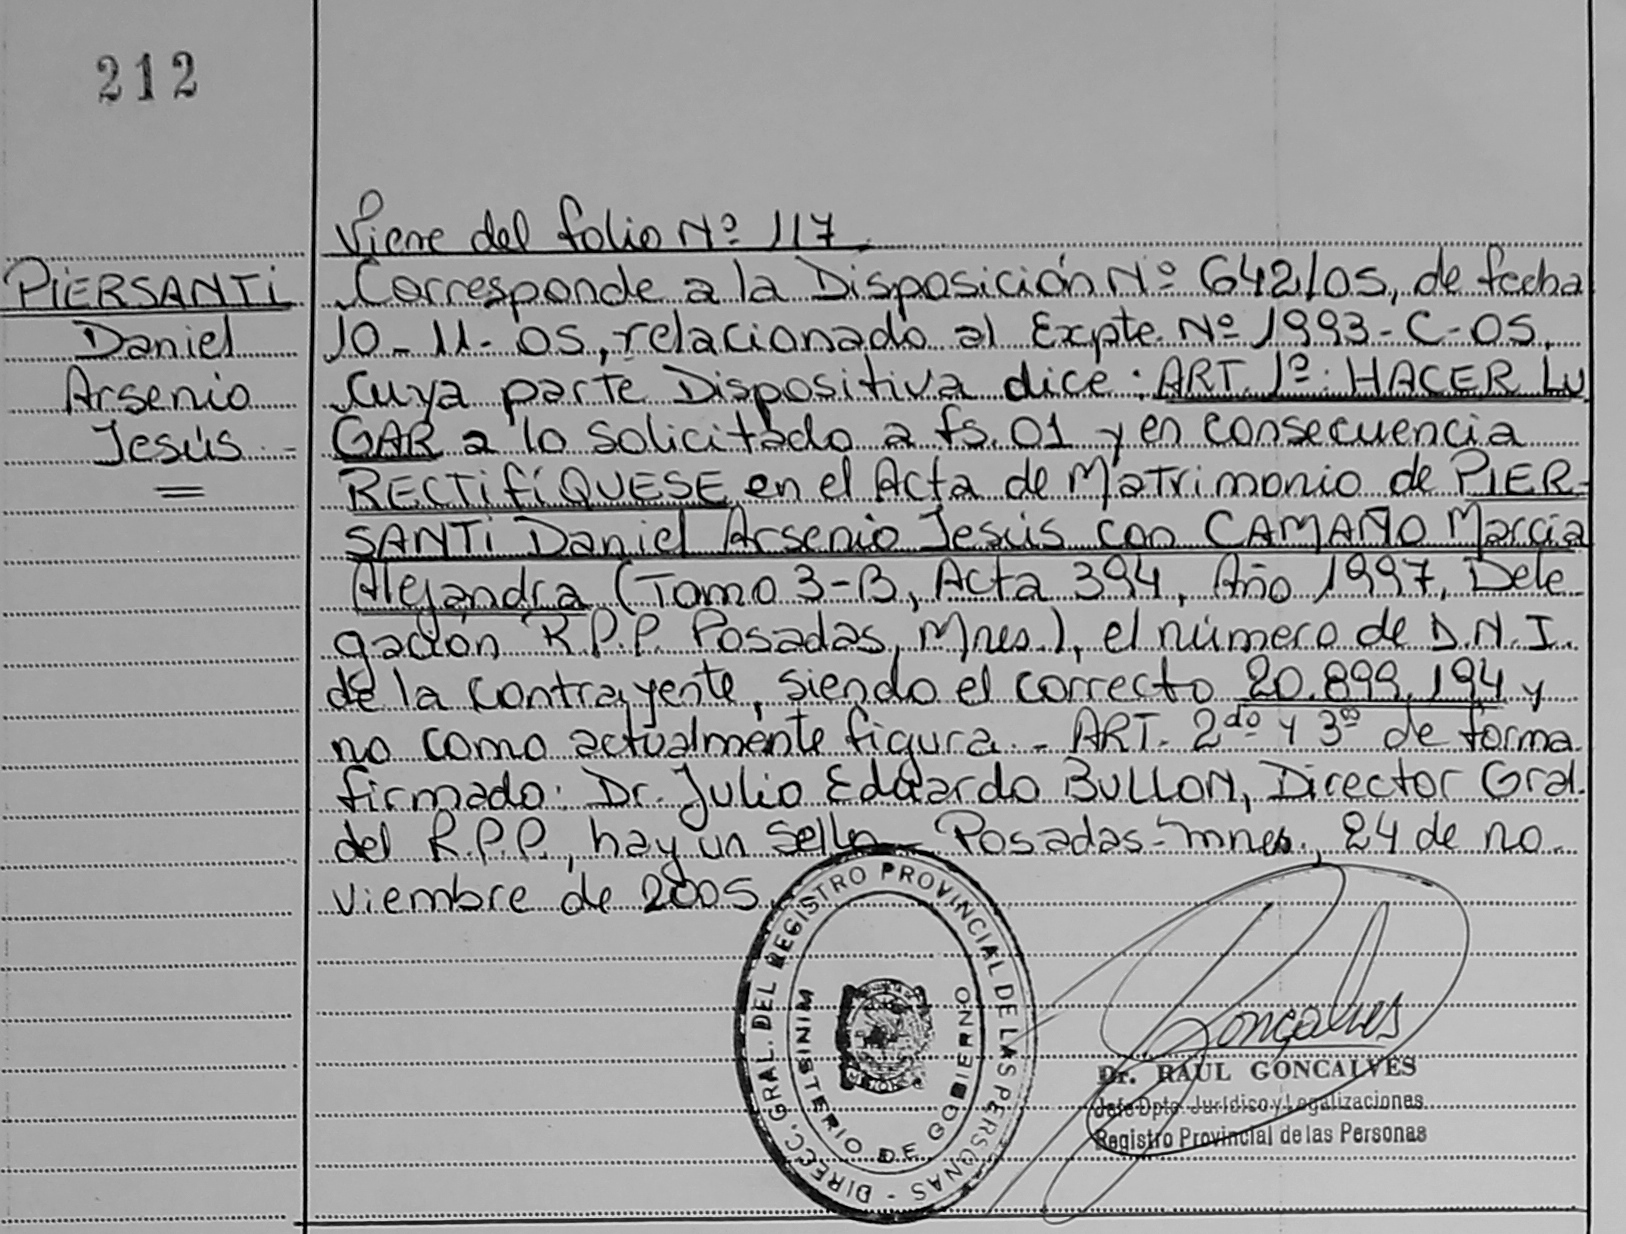 212
Viene del folio Nº 117
PIERSANTI
Daniel
Arsenio
Jesús.=
Corresponde a la Disposición Nº 642/05, de fecha
10-11-05, relacionado al Expte. Nº 1993-C-05,
cuya parte Dispositiva dice: ART. 1º: HACER LU
GAR a lo solicitado a fs. 01 y en consecuencia
RECTIFÍQUESE en el Acta de Matrimonio de PIER-
SANTI Daniel Arsenio Jesús con CAMAÑO Marcia
Alejandra (Tomo 3-B, Acta 394, Año 1997, Dele-
gación R.P.P. Posadas, Mnes.), el número de D.N.I.
de la contrayente, siendo el correcto 20.899.194 y
no como actualmente figura.- ART. 2do y 3º de forma
firmado: Dr. Julio Eduardo BULLON, Director Gral.
del R.P.P., hay un sello- Posadas-mnes., 24 de no-
viembre de 2005.
DIRECC. GRAL. DEL REGISTRO PROVINCIAL DE LAS PERSONAS -
MINISTERIO DE GOBIERNO
Goncalves
Dr. RAUL GONCALVES
Jefe Dpto. Jurídico y Legalizaciones
Registro Provincial de las Personas